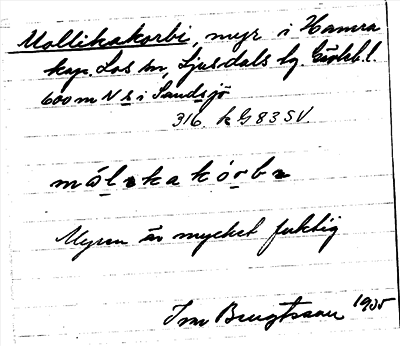 Mollikakorbi, myr i Hamra
kap. Los sn, Ljusdals tg. Gävleb. l.
600 m N s i Sandsjö
316. k G 83 SV.
mólıkakórbı
Myren är mycket fuktig
Im Bengtsson 1935